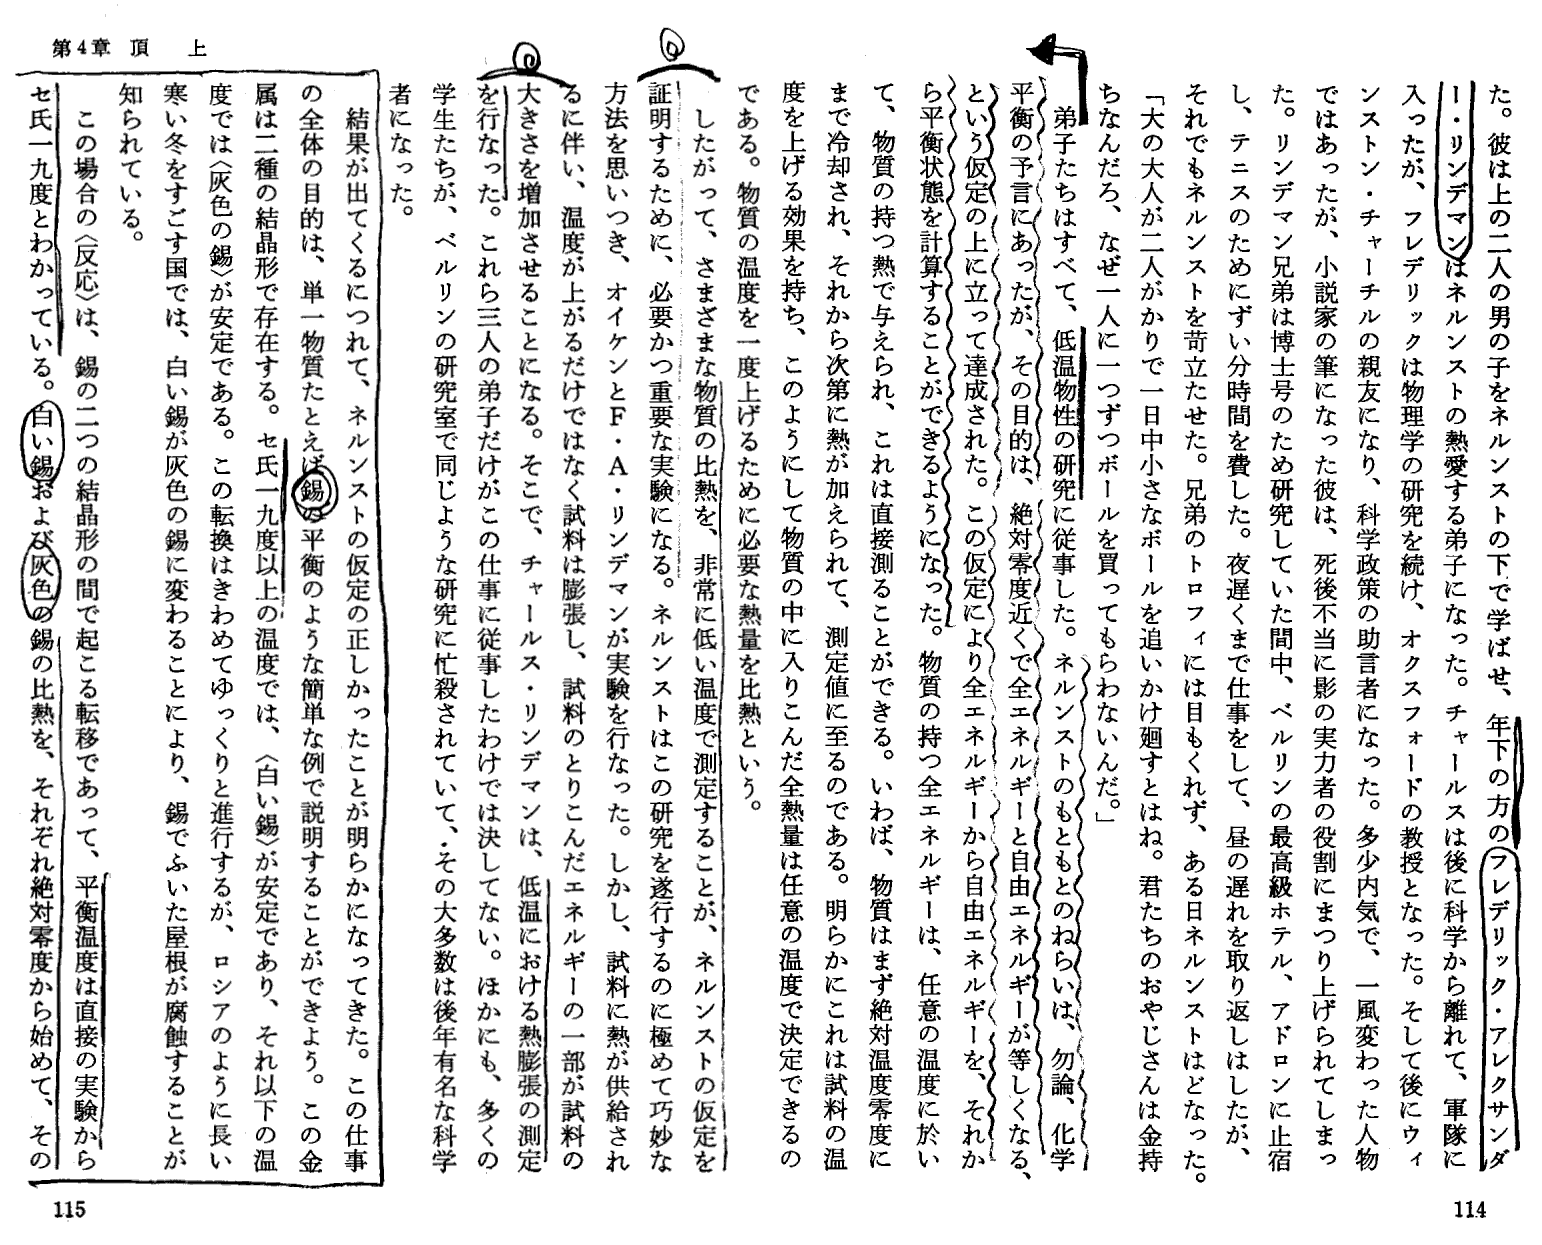 た。彼は上の二人の男の子をネルンストの下で学ばせ、年下の方のフレデリック・アレクサンダ
ー・リンデマンはネルンストの熱愛する弟子になった。チャールスは後に科学から離れて、軍隊に
入ったが、フレデリックは物理学の研究を続け、オクスフォードの教授となった。そして後にウィ
ンストン・チャーチルの親友になり、科学政策の助言者になった。多少内気で、一風変わった人物
ではあったが、小説家の筆になった彼は、死後不当に影の実力者の役割にまつり上げられてしまっ
た。リンデマン兄弟は博士号のため研究していた間中、ベルリンの最高級ホテル、アドロンに止宿
し、テニスのためにずい分時間を費した。夜遅くまで仕事をして、昼の遅れを取り返しはしたが、
それでもネルンストを苛立たせた。兄弟のトロフィには目もくれず、ある日ネルンストはどなった。
「大の大人が二人がかりで一日中小さなボールを追いかけ廻すとはね。君たちのおやじさんは金持
ちなんだろ、なぜ一人に一つずつボールを買ってもらわないんだ。」
弟子たちはすべて、低温物性の研究に従事した。ネルンストのもともとのねらいは、勿論、化学
平衡の予言にあったが、その目的は、絶対零度近くで全エネルギーと自由エネルギーが等しくなる、
という仮定の上に立って達成された。この仮定により全エネルギーから自由エネルギーを、それか
ら平衡状態を計算することができるようになった。物質の持つ全エネルギーは、任意の温度に於い
て、物質の持つ熱で与えられ、これは直接測ることができる。いわば、物質はまず絶対温度零度に
まで冷却され、それから次第に熱が加えられて、測定値に至るのである。明らかにこれは試料の温
度を上げる効果を持ち、このようにして物質の中に入りこんだ全熱量は任意の温度で決定できるの
である。物質の温度を一度上げるために必要な熱量を比熱という。
したがって、さまざまな物質の比熱を、非常に低い温度で測定することが、ネルンストの仮定を
証明するために、必要かつ重要な実験になる。ネルンストはこの研究を遂行するのに極めて巧妙な
方法を思いつき、オイケンとF・A・リンデマンが実験を行なった。しかし、試料に熱が供給され
るに伴い、温度が上がるだけではなく試料は膨張し、試料のとりこんだエネルギーの一部が試料の
大きさを増加させることになる。そこで、チャールス・リンデマンは、低温における熱膨張の測定
を行なった。これら三人の弟子だけがこの仕事に従事したわけでは決してない。ほかにも、多くの
学生たちが、ベルリンの研究室で同じような研究に忙殺されていて、その大多数は後年有名な科学
者になった。
結果が出てくるにつれて、ネルンストの仮定の正しかったことが明らかになってきた。この仕事
の全体の目的は、単一物質たとえば錫の平衡のような簡単な例で説明することができよう。この金
属は二種の結晶形で存在する。セ氏一九度以上の温度では、〈白い錫〉が安定であり、それ以下の温
度では〈灰色の錫〉が安定である。この転換はきわめてゆっくりと進行するが、ロシアのように長い
寒い冬をすごす国では、白い錫が灰色の錫に変わることにより、錫でふいた屋根が腐蝕することが
知られている。
この場合の〈反応〉は、錫の二つの結晶形の間で起こる転移であって、平衡温度は直接の実験から
セ氏一九度とわかっている。白い錫および灰色の錫の比熱を、それぞれ絶対零度から始めて、その
114
第4章 頂 上
115